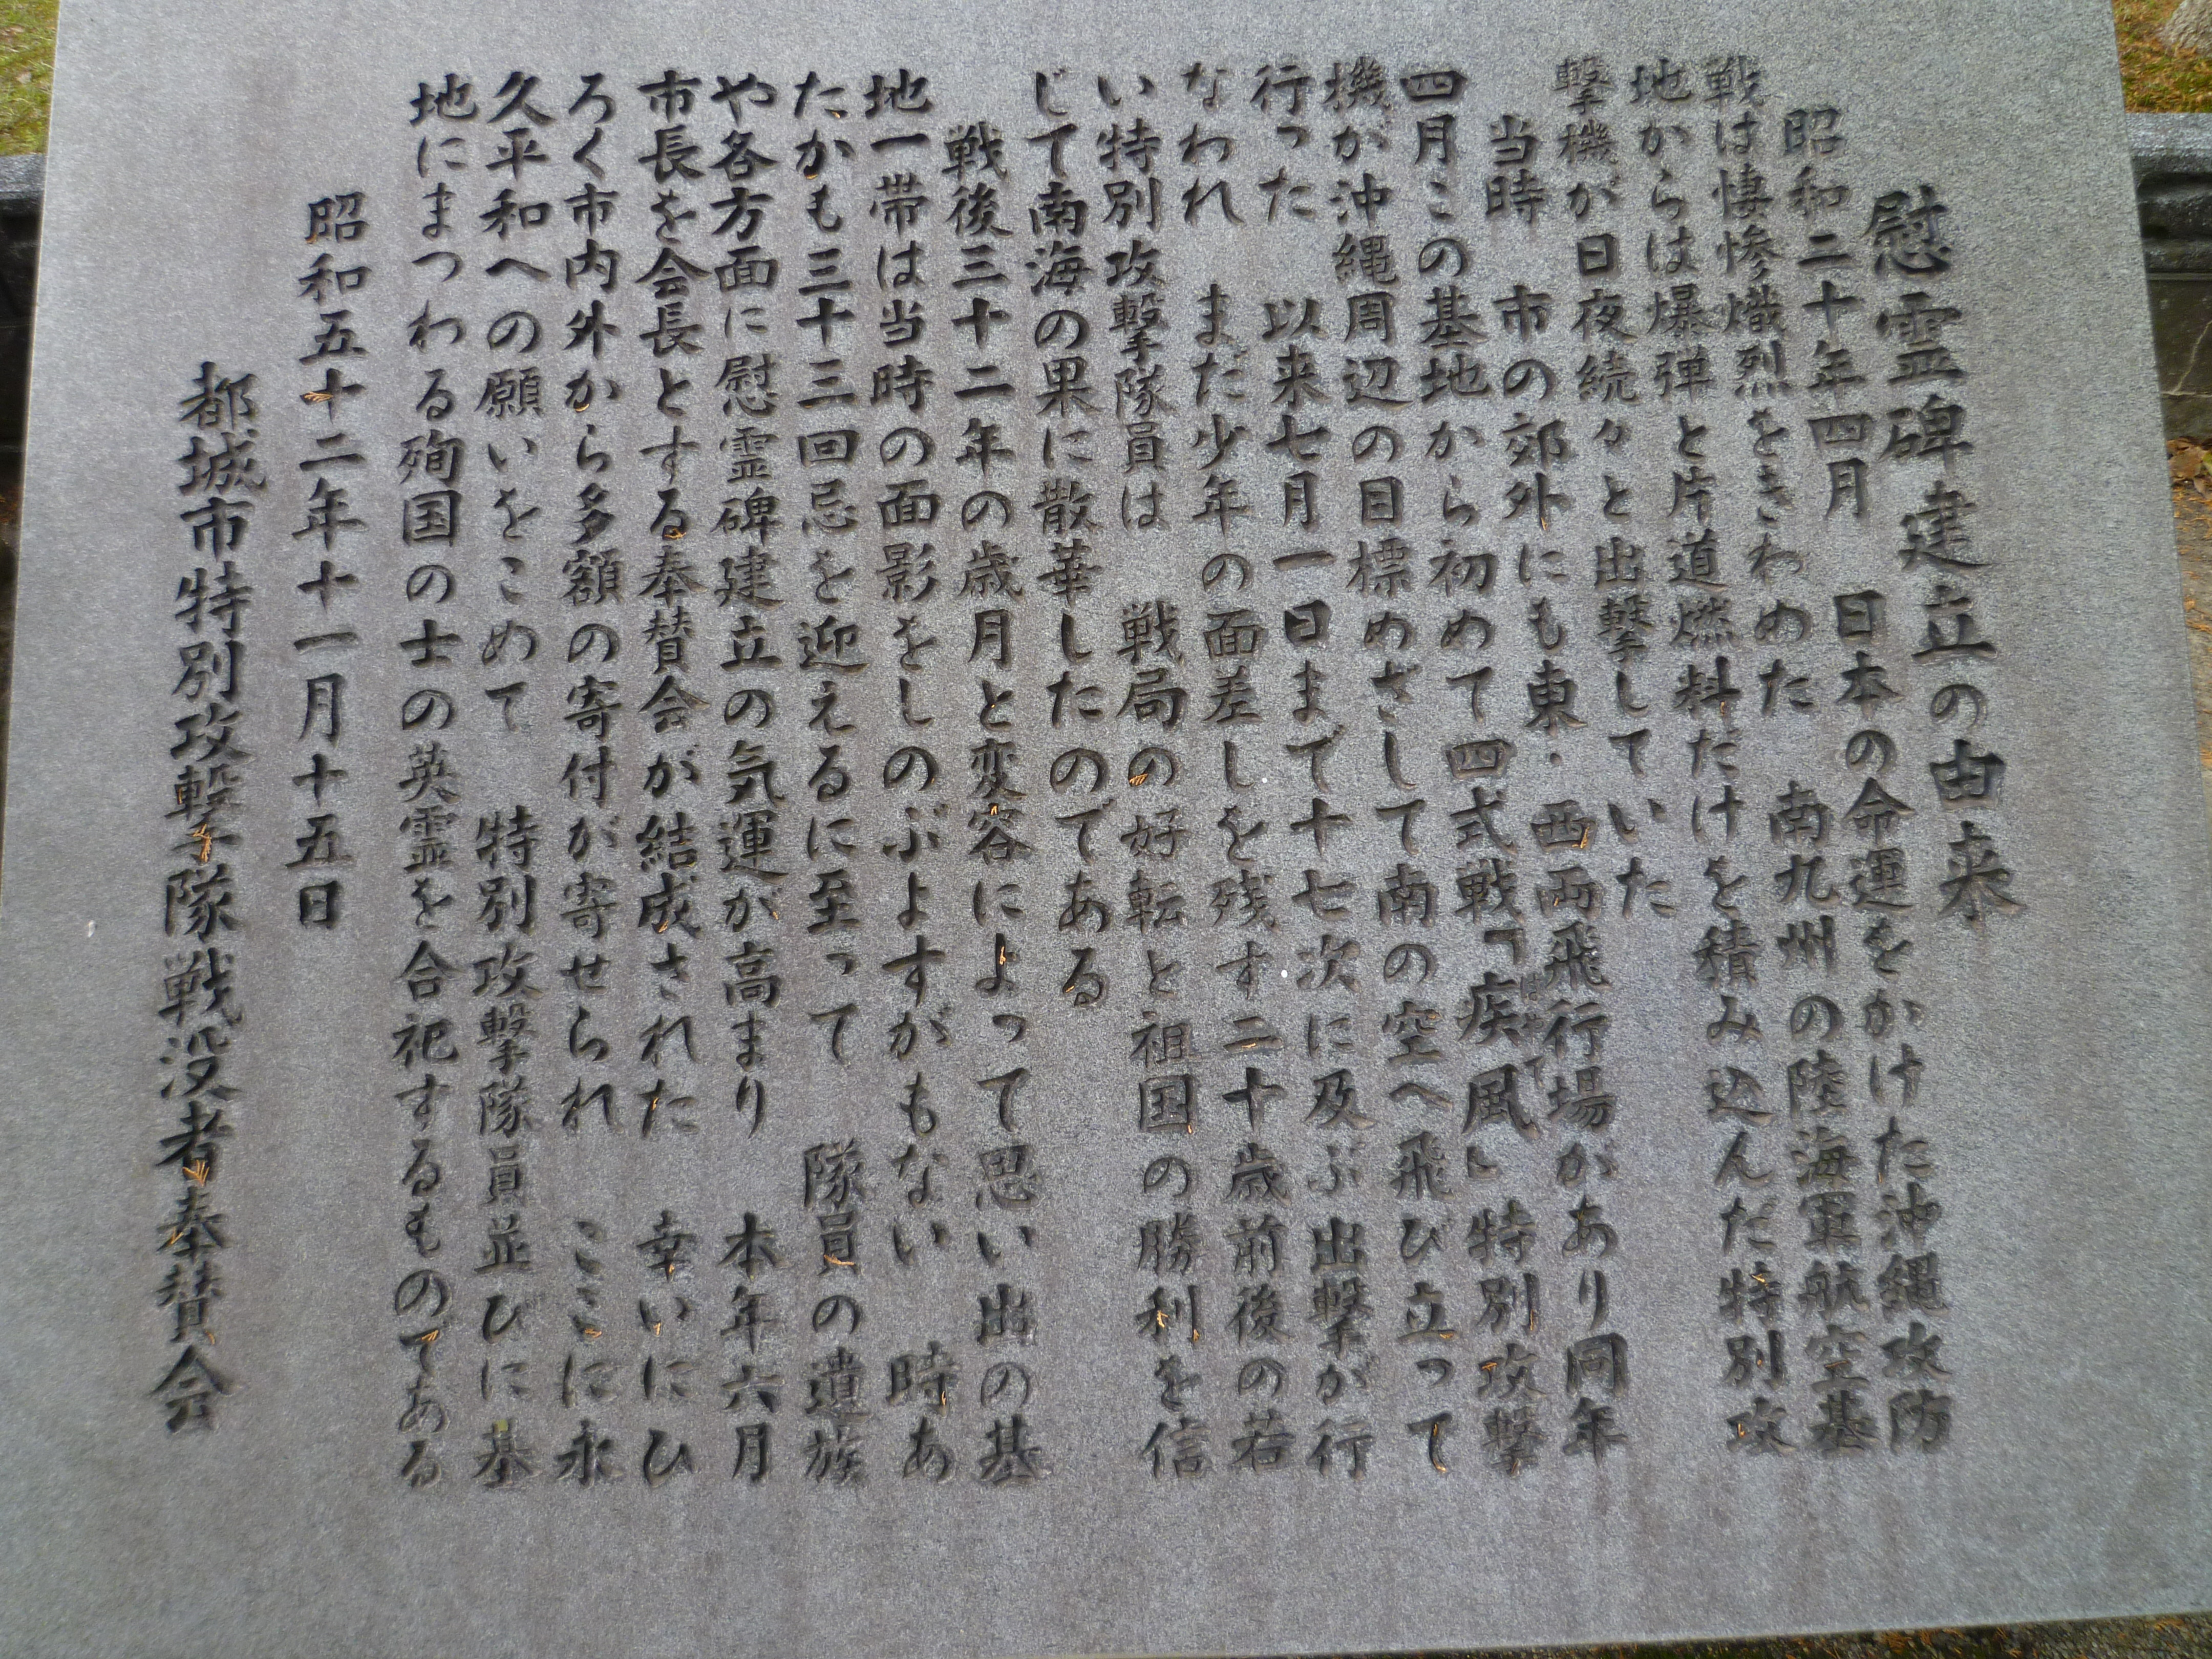 慰霊碑建立の由来
昭和二十年四月　日本の命運をかけた沖縄攻防
戦は悽惨熾烈をきわめた　南九州の陸海軍航空基
地からは爆弾と片道燃料だけを積み込んだ特別攻
撃機が日夜続々と出撃していた
当時　市の郊外にも東・西両飛行場があり同年
四月この基地から初めて四式戦「疾風」特別攻撃
機が沖縄周辺の目標めざして南の空へ飛び立って
行った　以来七月一日まで十七次に及ぶ出撃が行
なわれ　まだ少年の面差しを残す二十歳前後の若
い特別攻撃隊員は　戦局の好転と祖国の勝利を信
じて南海の果に散華したのである
戦後三十二年の歳月と変容によって思い出の基
地一帯は当時の面影をしのぶよすがもない　時あ
たかも三十三回忌を迎えるに至って　隊員の遺族
や各方面に慰霊碑建立の気運が高まり　本年六月
市長を会長とする奉賛会が結成された　幸いにひ
ろく市内外から多額の寄付が寄せられ　ここに永
久平和への願いをこめて　特別攻撃隊員並びに基
地にまつわる殉国の士の英霊を合祀するものである
昭和五十二年十一月十五日
都城市特別攻撃隊戦没者奉賛会